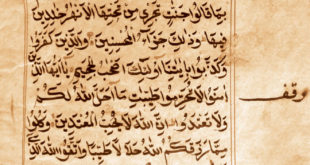 بِمَا قَالُوا جَنَّتٍ تَجْرِي مِنْ تَحْتِهَا الْأَنْهَرُ خَلِدِينَ
فِيهَا وَذَلِكَ جَزَاءُ الْمُحْسِنِينَ وَالَّذِينَ كَفَرُوا
وَكَذَّبُوا بِايَتِنَا أُولَئِكَ أَصْحَبُ الْجَحِيمِ يَاأَيُّهَا الَّذِينَ
امَنُوا لَا تُحَرِّمُوا طَيِّبَتِ مَا أَحَلَّ اللَّهُ لَكُمْ
وَلَا تَعْتَدُوا إِنَّ اللَّهَ لَا يُحِبُّ الْمُعْتَدِينَ وَكُلُوا
مِمَّا رَزَقَكُمُ اللَّهُ حَلَلًا طَيِّبًا وَاتَّقُوا اللَّهَ الَّذِي
وقف